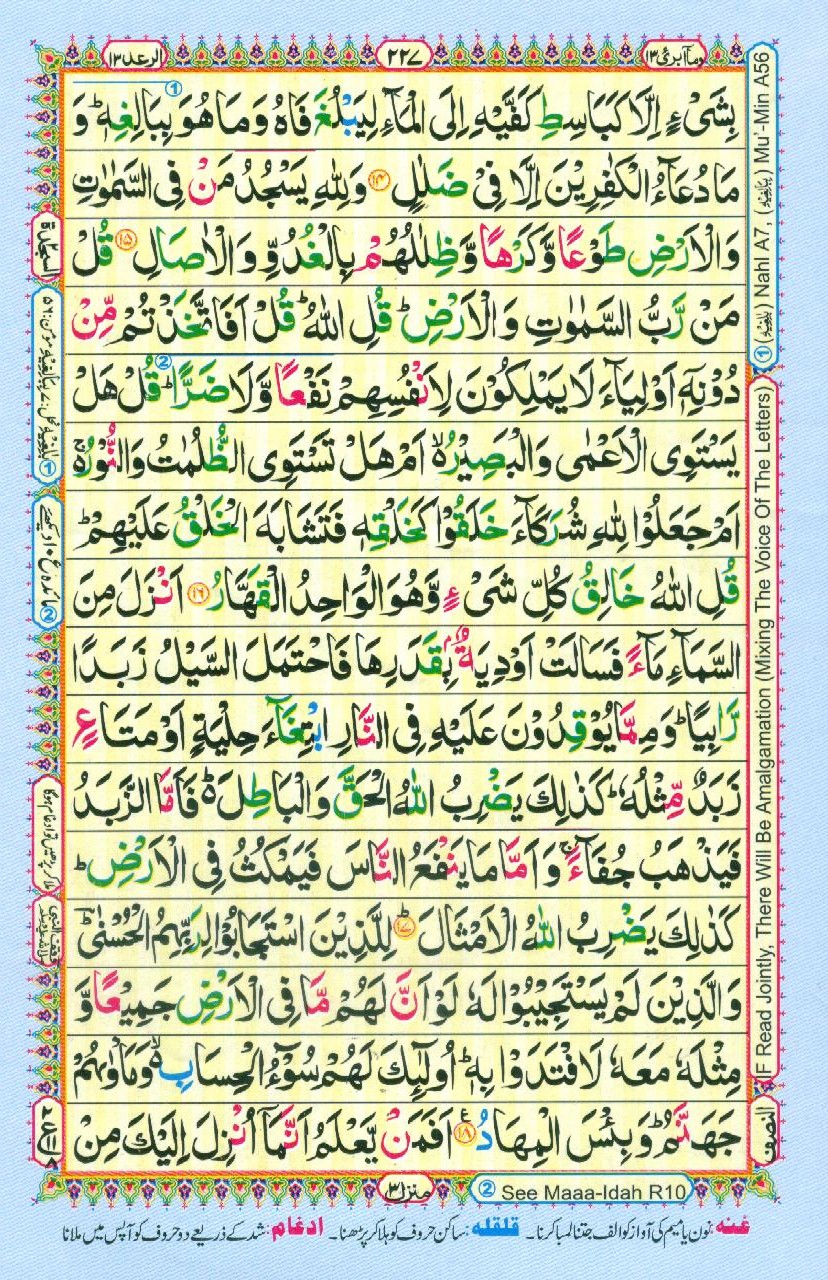 وما ابرئ ١٣
٢٢٧
الرعد ١٣
بِشَىْءٍ اِلَّا كَبَاسِطِ كَفَّيْهِ اِلَى الْمَآءِ لِيَبْلُغَ فَاهُ وَمَا هُوَ بِبَالِغِهٖ ؕ وَ
مَا دُعَآءُ الْكٰفِرِيْنَ اِلَّا فِىْ ضَلٰلٍ ۝١٤ وَلِلّٰهِ يَسْجُدُ مَنْ فِى السَّمٰوٰتِ
وَالْاَرْضِ طَوْعًا وَّكَرْهًا وَّظِلٰلُهُمْ بِالْغُدُوِّ وَالْاٰصَالِ ۝١٥ قُلْ
مَنْ رَّبُّ السَّمٰوٰتِ وَالْاَرْضِ ؕ قُلِ اللّٰهُ ؕ قُلْ اَفَاتَّخَذْتُمْ مِّنْ
دُوْنِهٖۤ اَوْلِيَآءَ لَا يَمْلِكُوْنَ لِاَنْفُسِهِمْ نَفْعًا وَّلَا ضَرًّا ؕ قُلْ هَلْ
يَسْتَوِى الْاَعْمٰى وَالْبَصِيْرُ ۙ اَمْ هَلْ تَسْتَوِى الظُّلُمٰتُ وَالنُّوْرُ ۚ
اَمْ جَعَلُوْا لِلّٰهِ شُرَكَآءَ خَلَقُوْا كَخَلْقِهٖ فَتَشَابَهَ الْخَلْقُ عَلَيْهِمْ ؕ
قُلِ اللّٰهُ خَالِقُ كُلِّ شَىْءٍ وَّهُوَ الْوَاحِدُ الْقَهَّارُ ۝١٦ اَنْزَلَ مِنَ
السَّمَآءِ مَآءً فَسَالَتْ اَوْدِيَةٌۢ بِقَدَرِهَا فَاحْتَمَلَ السَّيْلُ زَبَدًا
رَّابِيًا ؕ وَمِمَّا يُوْقِدُوْنَ عَلَيْهِ فِى النَّارِ ابْتِغَآءَ حِلْيَةٍ اَوْ مَتَاعٍ
زَبَدٌ مِّثْلُهٗ ؕ كَذٰلِكَ يَضْرِبُ اللّٰهُ الْحَقَّ وَالْبَاطِلَ ۬ؕ فَاَمَّا الزَّبَدُ
فَيَذْهَبُ جُفَآءً ۚ وَاَمَّا مَا يَنْفَعُ النَّاسَ فَيَمْكُثُ فِى الْاَرْضِ ؕ
كَذٰلِكَ يَضْرِبُ اللّٰهُ الْاَمْثَالَ ؕ۝١٧ لِلَّذِيْنَ اسْتَجَابُوْا لِرَبِّهِمُ الْحُسْنٰى ؕ
وَالَّذِيْنَ لَمْ يَسْتَجِيْبُوْا لَهٗ لَوْ اَنَّ لَهُمْ مَّا فِى الْاَرْضِ جَمِيْعًا وَّ
مِثْلَهٗ مَعَهٗ لَافْتَدَوْا بِهٖ ؕ اُولٰٓئِكَ لَهُمْ سُوْٓءُ الْحِسَابِ ۙ وَمَاْوٰىهُمْ
جَهَنَّمُ ؕ وَبِئْسَ الْمِهَادُ ۝١٨ اَفَمَنْ يَّعْلَمُ اَنَّمَاۤ اُنْزِلَ اِلَيْكَ مِنْ
① (بٰلِغِيْهِ) Nahl A7, (بِبَالِغِيْهِ) Mu'-Min A56
IF Read Jointly, There Will Be Amalgamation (Mixing The Voice Of The Letters)
النصف
السجدة
② مائدہ ع ١٠ دیکھیے
ملا کر پڑھیں تو ادغام ہوگا
منزل ٣
② See Maaa-Idah R10
غنہ: نون یا میم کی آواز کو الف جتنا لمبا کرنا۔ قلقلہ: ساکن حروف کو ہلا کر پڑھنا۔ ادغام: شد کے ذریعے دو حروف کو آپس میں ملانا